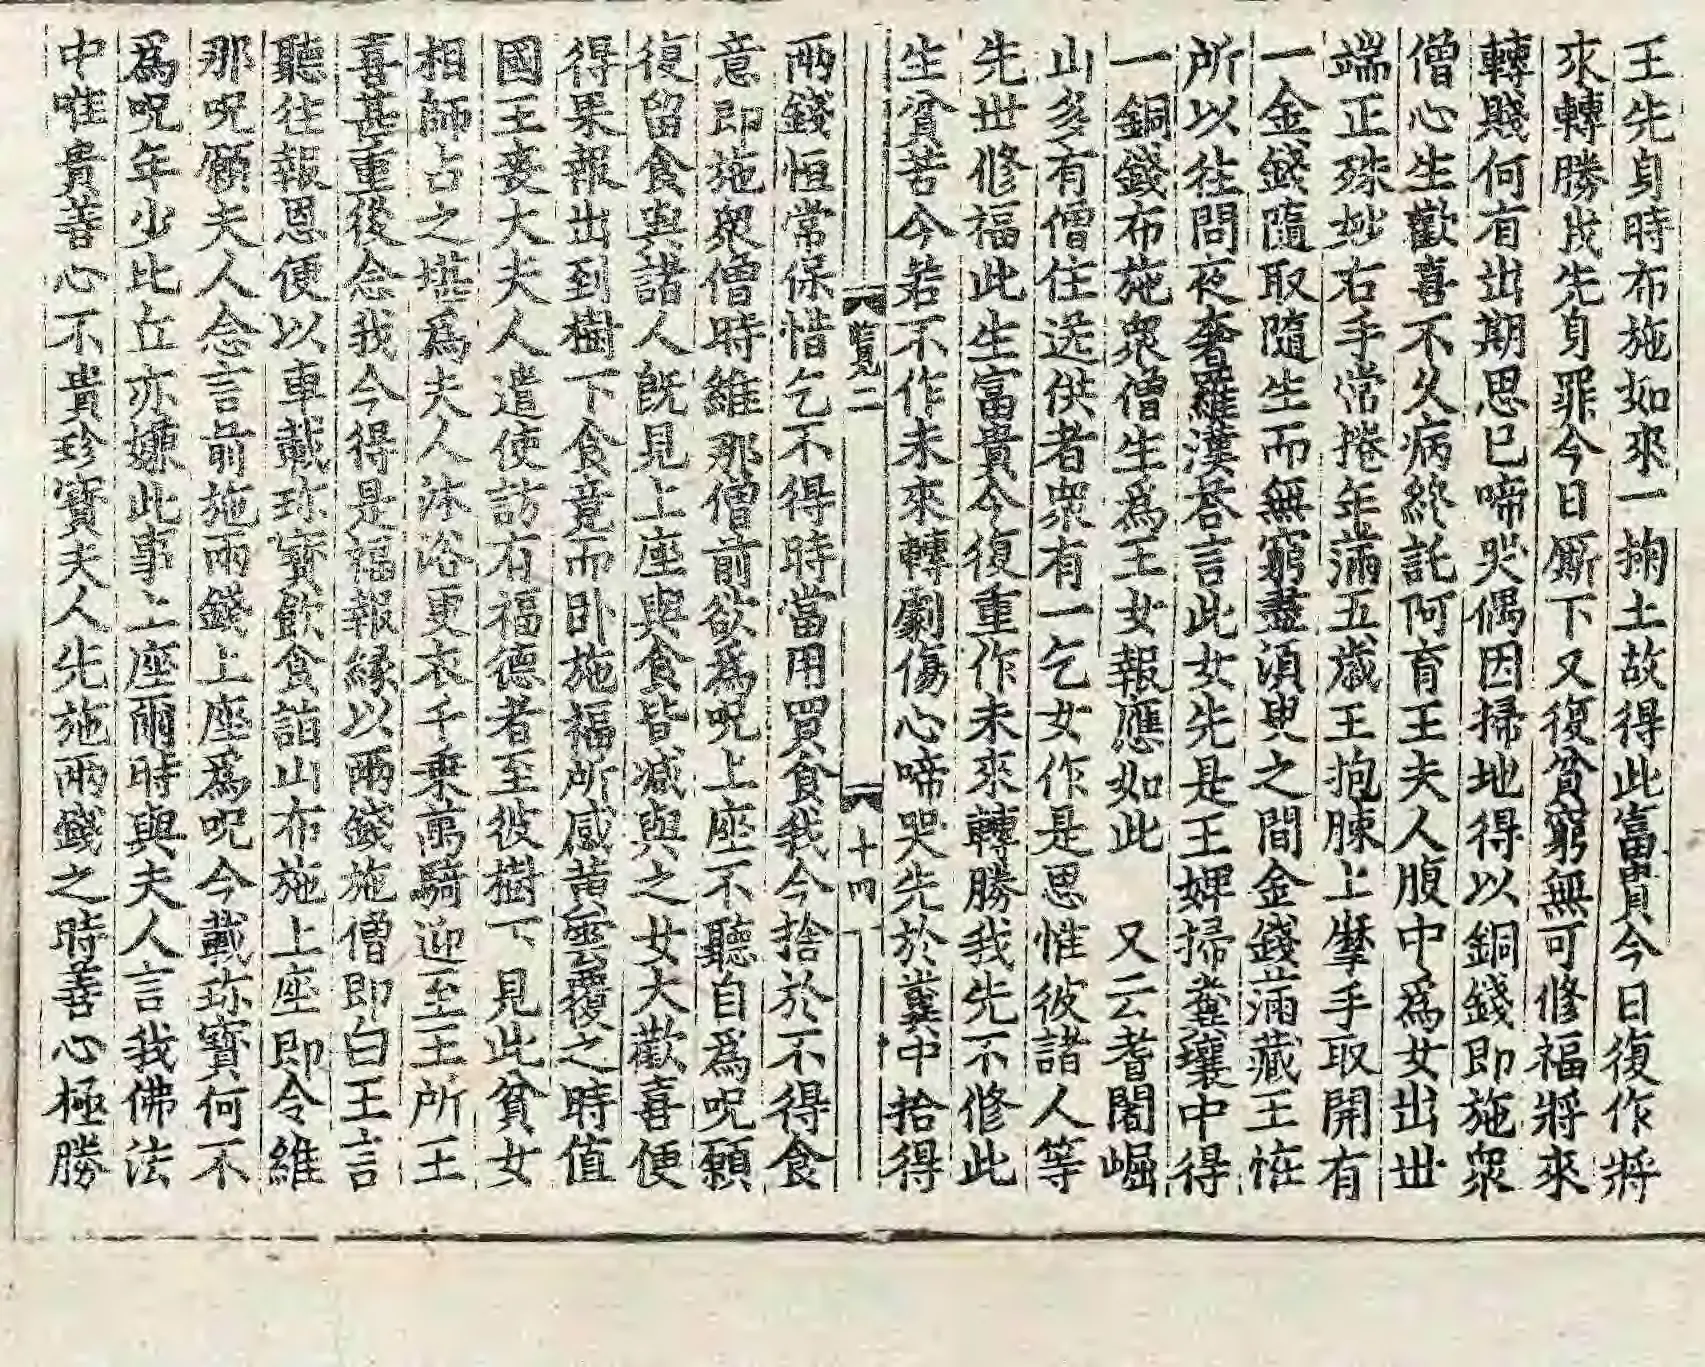 王先身時布施如來一掬土故得此富貴今日復作將
來轉勝我先身罪今日厮下又復貧窮無可修福將來
轉賤何有出期思已啼哭偶因掃地得以銅錢即施衆
僧心生歡喜不久病終託阿育王夫人腹中爲女出世
端正殊妙右手常捲年滿五歲王抱膝上摩手取開有
一金錢隨取隨生而無窮盡須臾之間金錢滿藏王恠
所以往問夜奢羅漢答言此女先是王婢掃糞壤中得
一銅錢布施衆僧生爲王女報應如此 又云耆闍崛
山多有僧住送供者衆有一乞女作是思惟彼諸人等
先世修福此生富貴今復重作未來轉勝我先不修此
生貧苦今若不作未來轉劇傷心啼哭先於糞中拾得
覽二 十四
兩錢恒常保惜乞不得時當用買食我今捨於不得食
意即施衆僧時維那僧前欲爲呪上座不聽自爲呪願
復留食與諸人旣見上座與食皆减與之女大歡喜便
得果報出到樹下食竟而卧施福所感黃雲覆之時值
國王喪大夫人遣使訪有福德者至彼樹下見此貧女
相師占之堪爲夫人沐浴更衣千乗萬騎迎至王所王
喜甚重後念我今得是福報緣以兩錢施僧即白王言
聽往報恩便以車載珎寶飲食詣山布施上座即令維
那呪願夫人念言前施兩錢上座爲呪今載珎寶何不
爲呪年少比丘亦嫌此事上座爾時與夫人言我佛法
中唯貴善心不貴珍寶夫人先施兩錢之時善心極勝